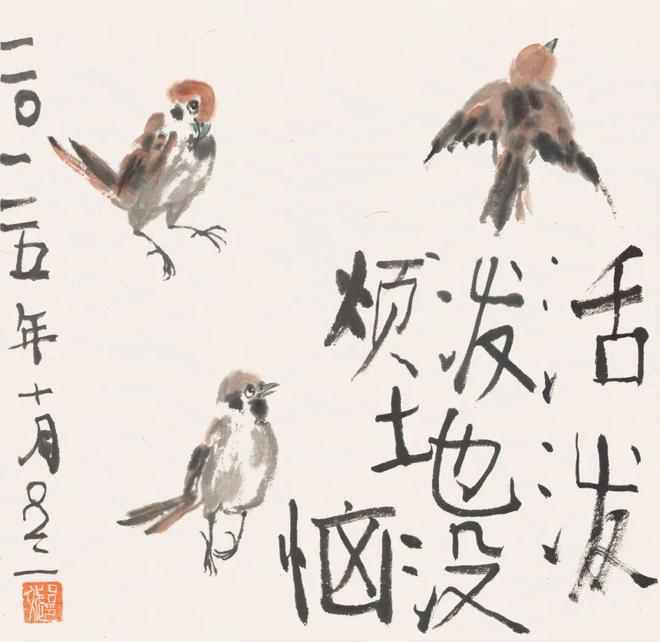 活泼
泼地没
烦恼
二〇二五年十月吕三